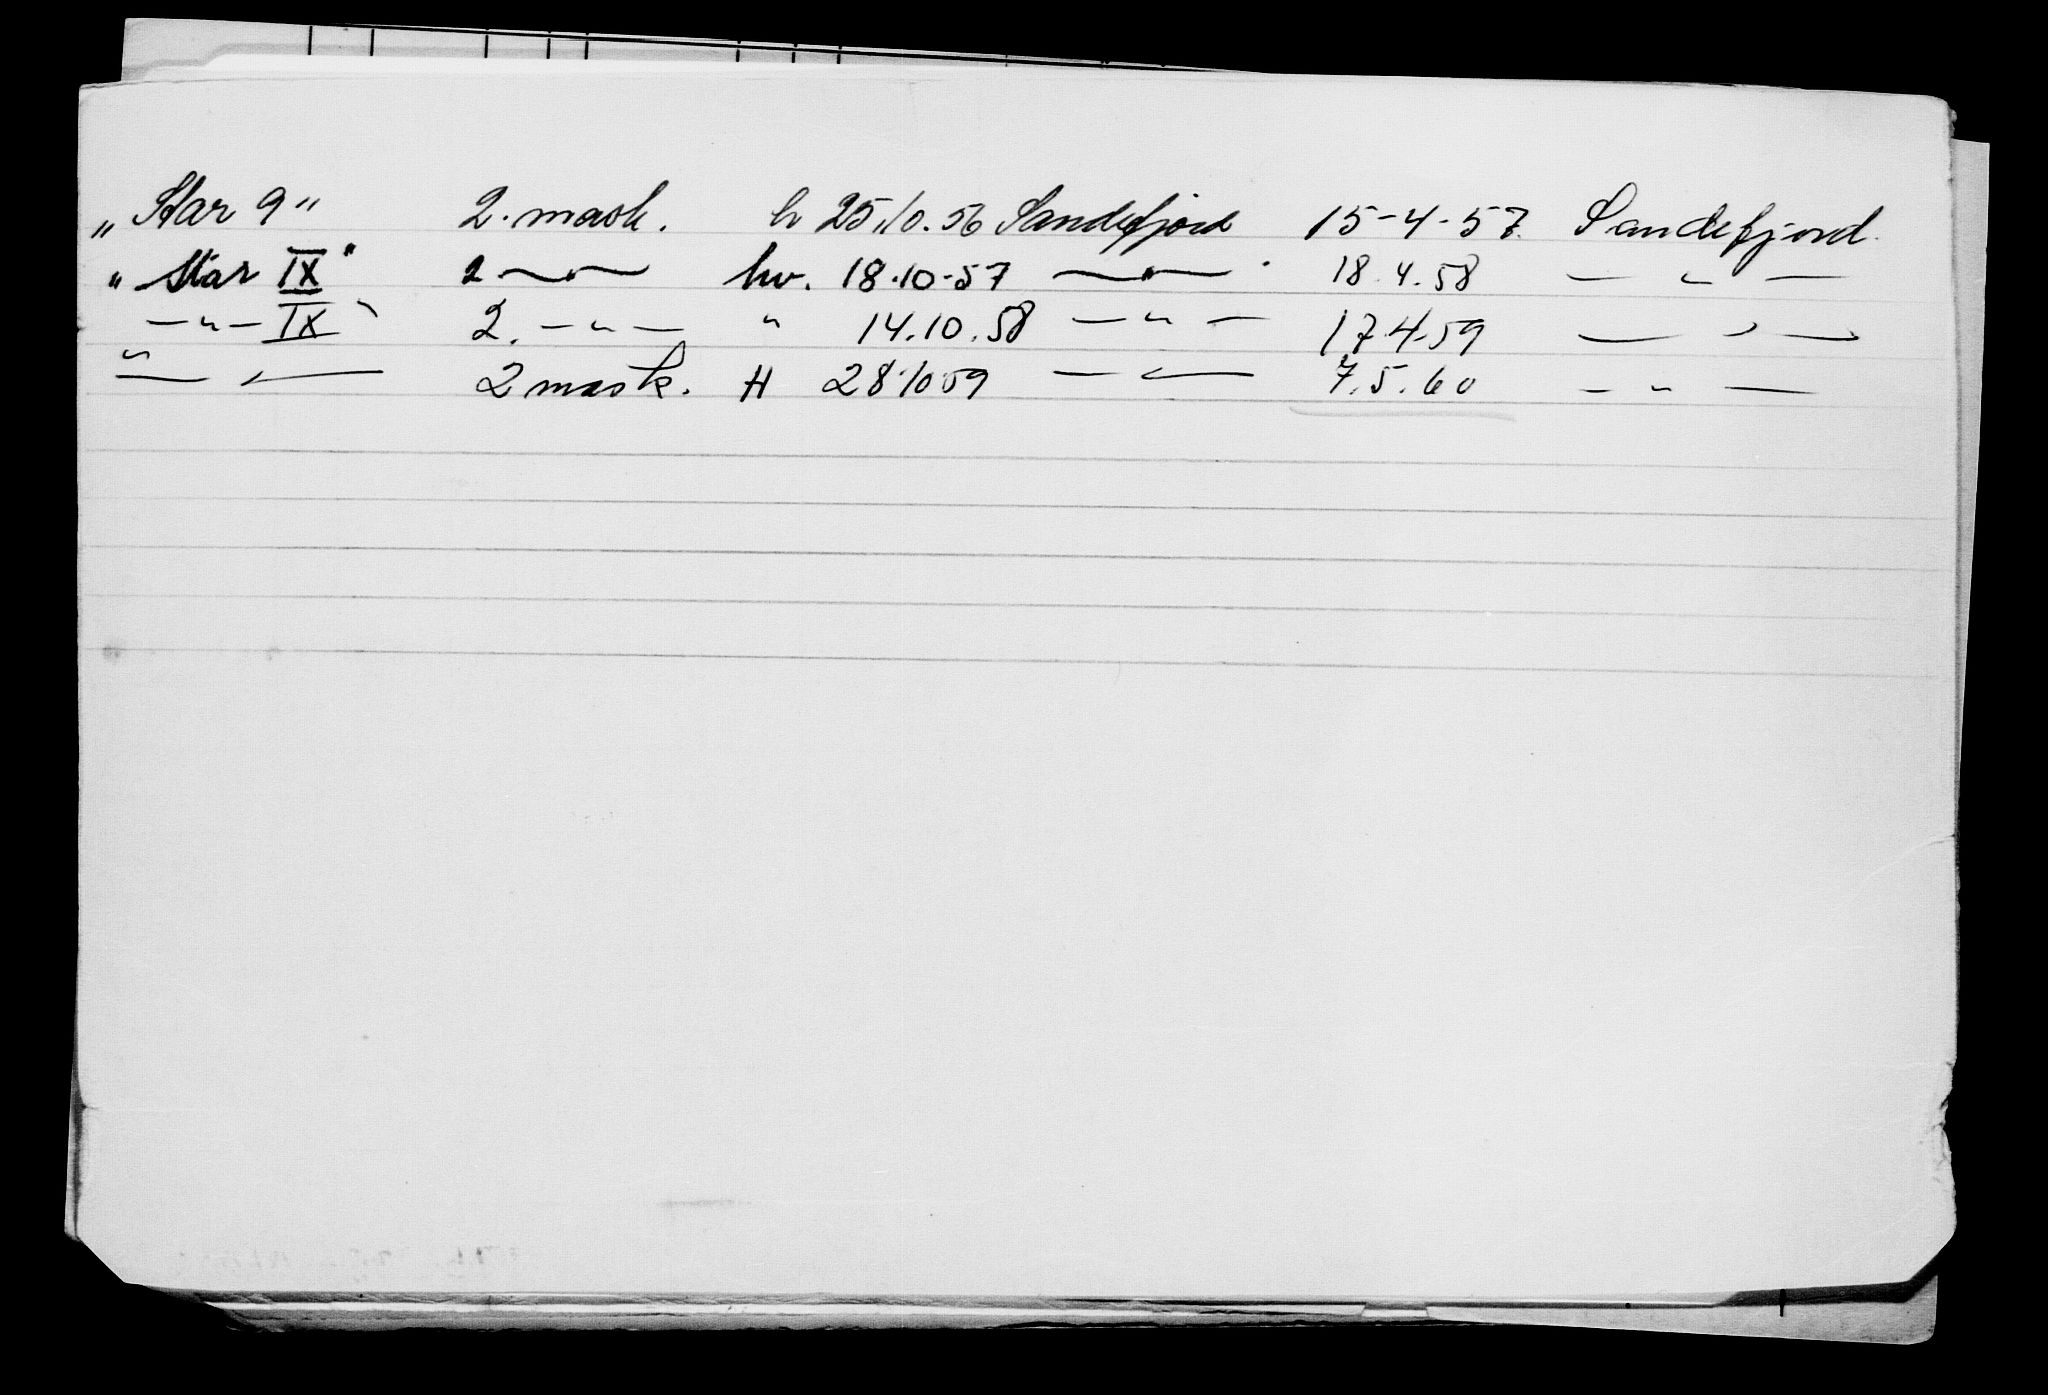 „Star 9" 2. mask. h 25/10.56 Sandefjord 15-4-57. Sandefjord.
"Star IX" 2 —"— hv. 18.10-57 —"— 18.4.58 — " —
—"— IX 2. —"— " 14.10.58 —"— 17.4.59 — " —
—"— 2 mask. H 28/10 59 —"— 7.5.60 — " —